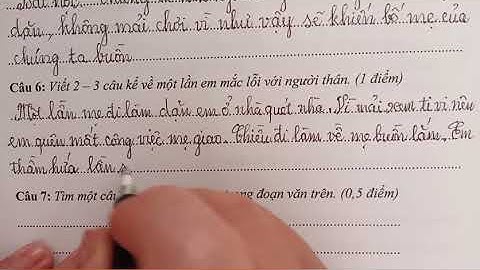 dặn, không mải chơi vì như vậy sẽ khiến bố mẹ của
chúng ta buồn
Câu 6: Viết 2 – 3 câu kể về một lần em mắc lỗi với người thân. (1 điểm)
Một lần mẹ đi làm dặn em ở nhà quét nhà. Vì mải xem ti vi nên
em quên mất công việc mẹ giao. Chiều đi làm về mẹ buồn lắm. Em
thầm hứa lần s
Câu 7: Tìm một câ đoạn văn trên. (0,5 điểm)